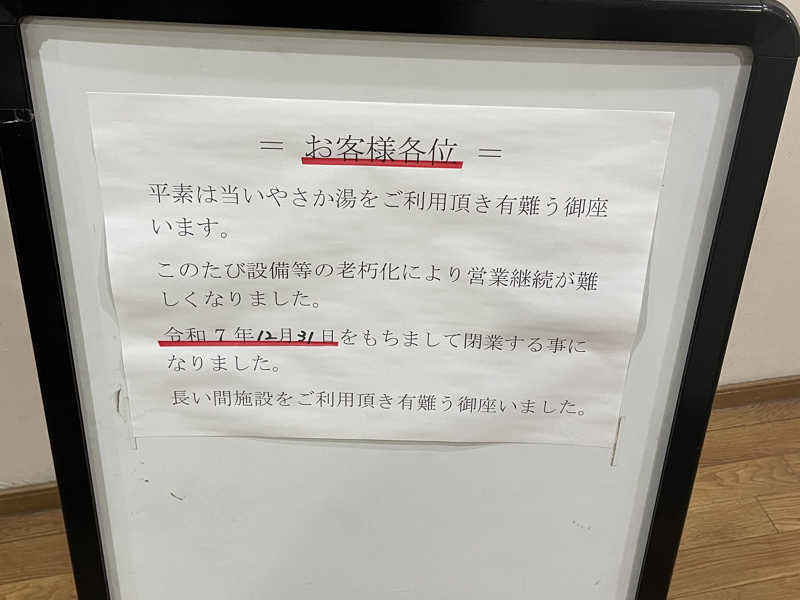 ＝ お客様各位 ＝
平素は当いやさか湯をご利用頂き有難う御座
います。
このたび設備等の老朽化により営業継続が難
しくなりました。
令和７年12月31日をもちまして閉業する事に
なりました。
長い間施設をご利用頂き有難う御座いました。